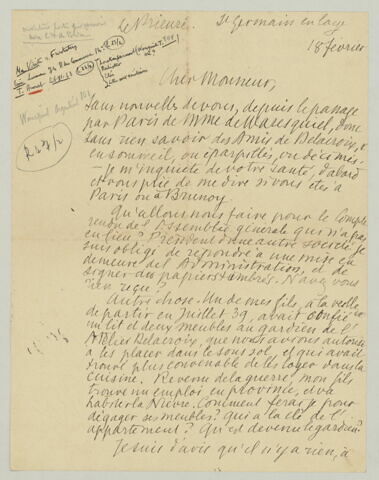 Le Prieuré
St Germain en Laye
18 février
R 27/2
Cher Monsieur,
Sans nouvelles de vous, depuis le passage
par Paris de Mme de Waresquiel, donc
sans rien savoir des Amis de Delacroix,
en sommeil, ou éparpillés, ou décimés
je m'inquiète de votre santé, d'abord
et vous prie de me dire si vous êtes à
Paris ou à Brunoy.
Qu'allons nous faire pour le Compte
rendu de l'Assemblée générale qui n'a pas
eu lieu? Président d'une autre société, je
suis obligé de répondre à une mise en
demeure de l'Administration, et de
signer des papiers timbrés. N'avez vous
rien reçu?
Autre chose. Un de mes fils, à la veille
de partir en Juillet 39, avait confié
un lit et deux meubles au gardien de l'
Atelier Delacroix, que nous avions autorisé
à les placer dans le sous sol, et qui avait
trouvé plus convenable de les loger dans la
cuisine. Revenu de la guerre, mon fils
trouve un emploi en province, et va
habiter la Nièvre. Comment ferais je pour
dégager ses meubles? qui a la clé de l'
appartement? Qu'est devenu le gardien?
Je suis d'avis qu'il n'y a rien, à